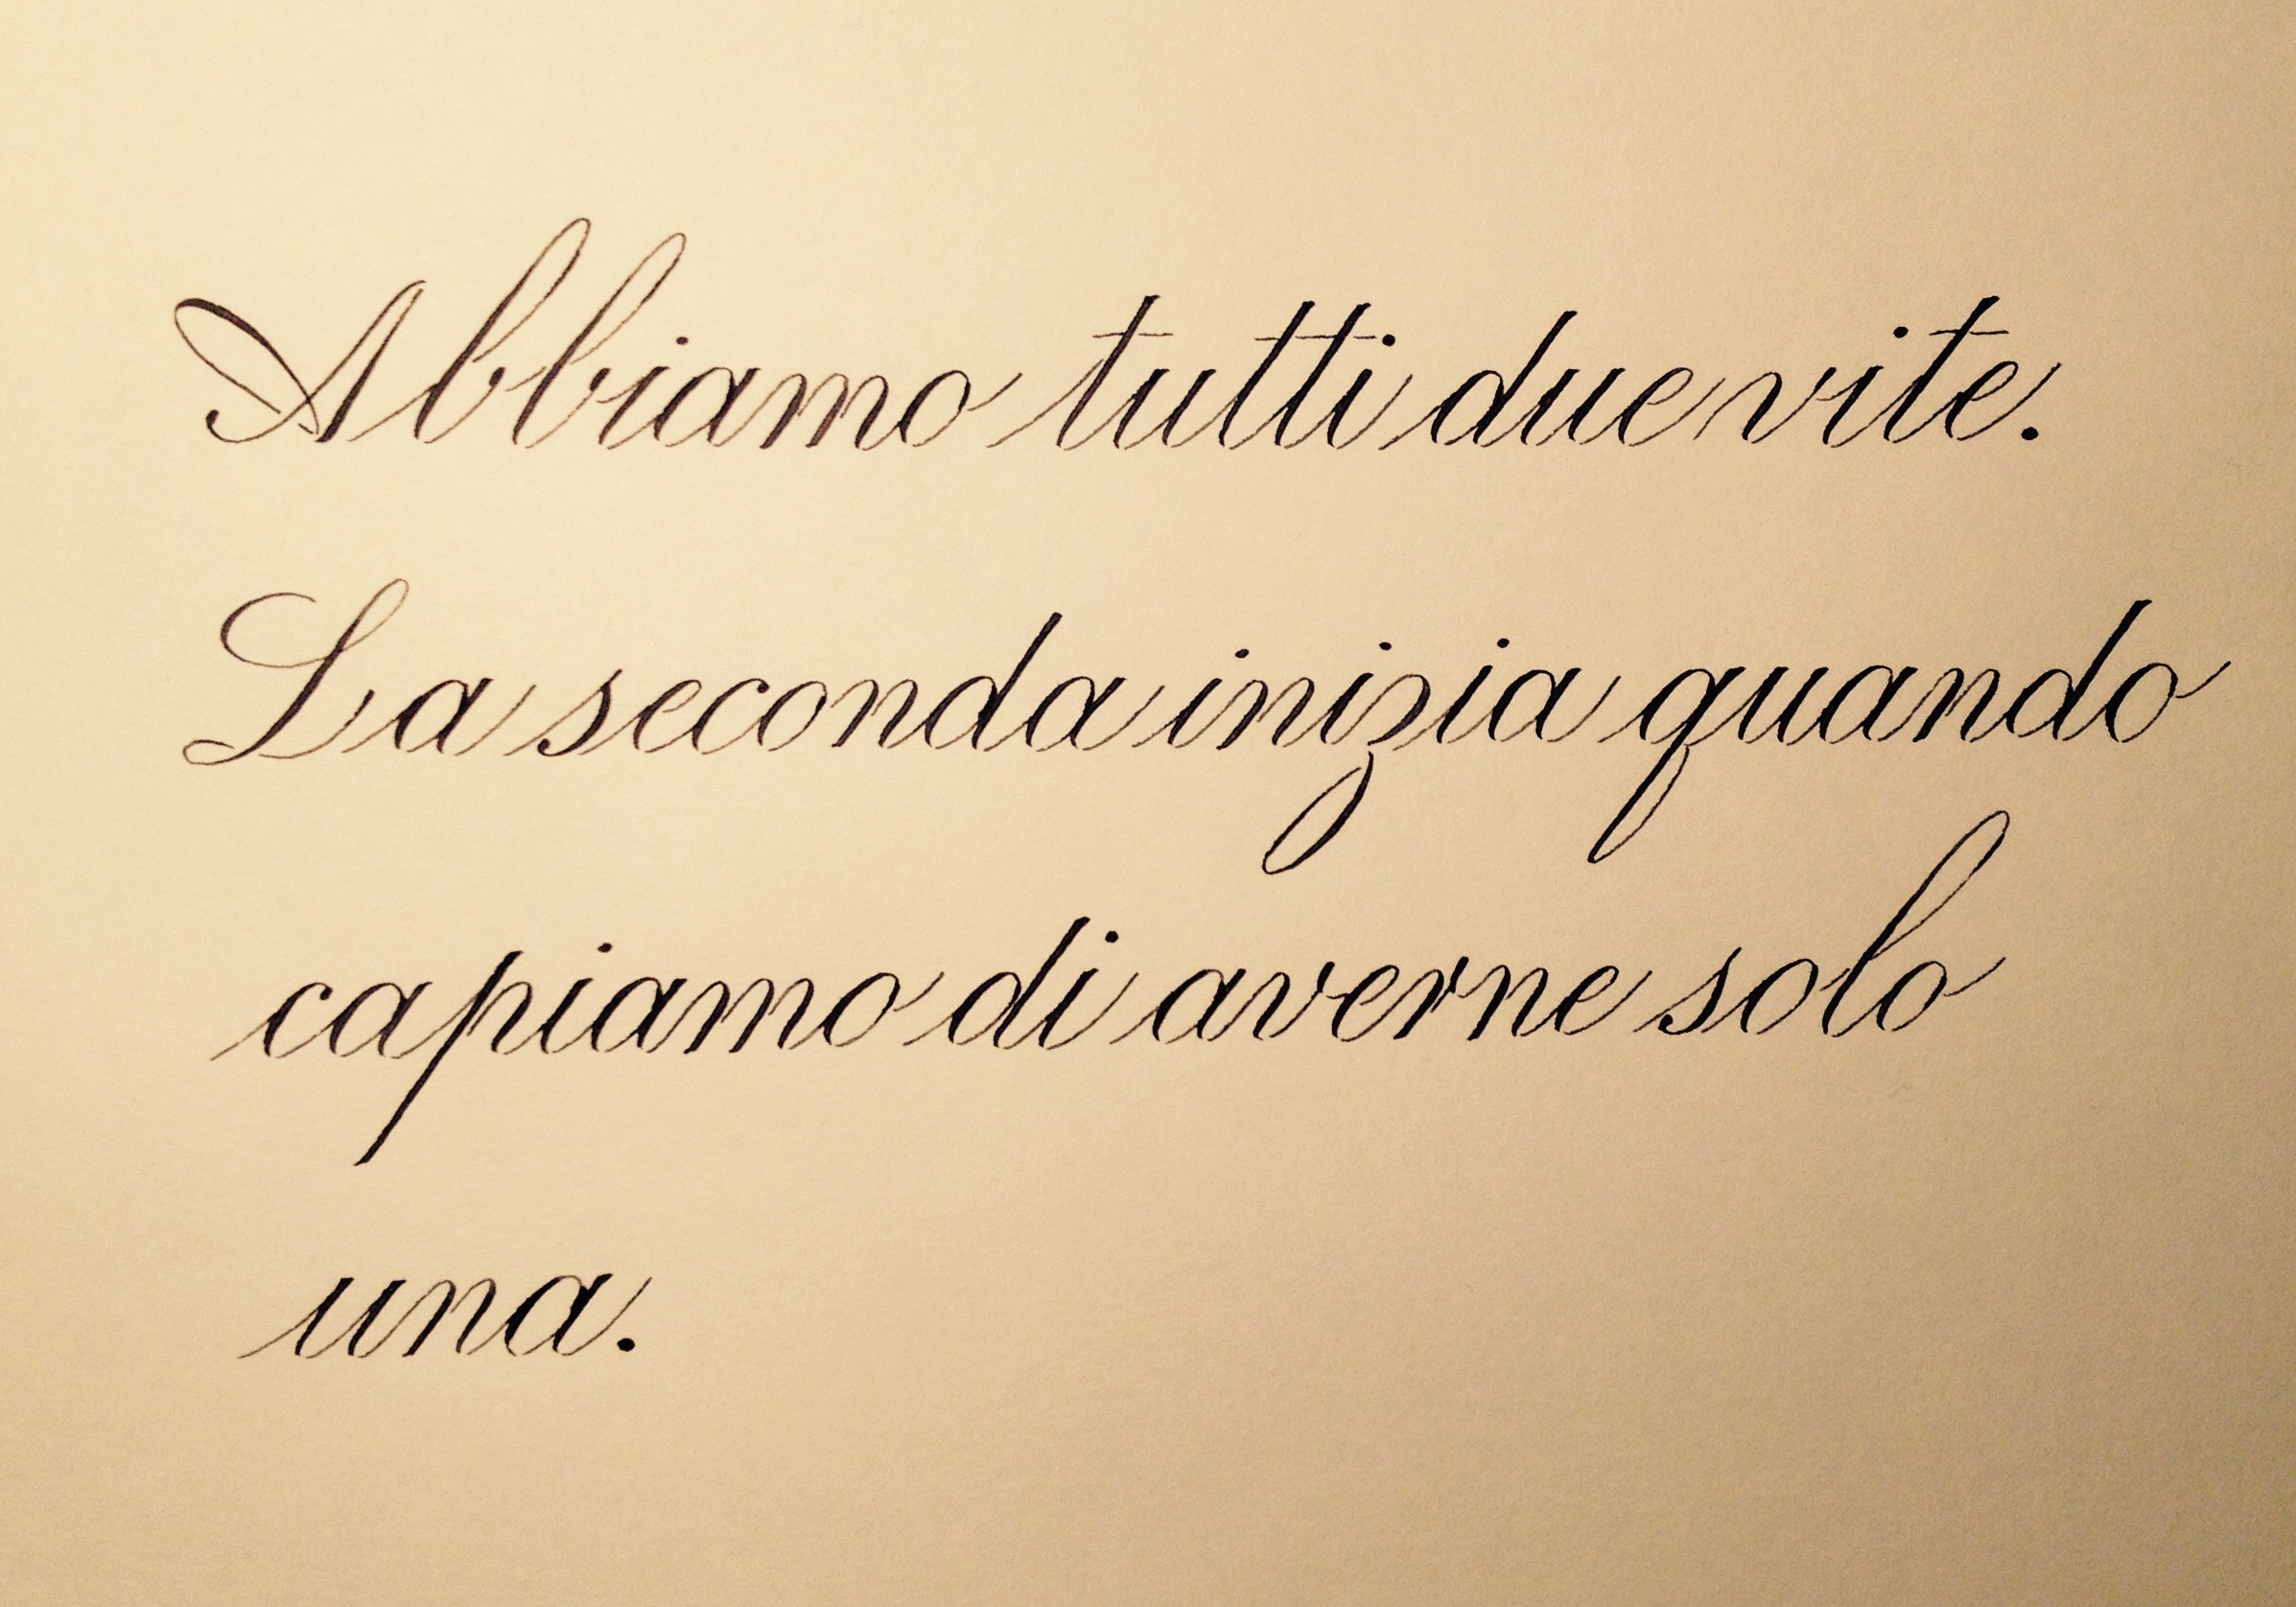 Abbiamo tutti due vite.
La seconda inizia quando
capiamo di averne solo
una.